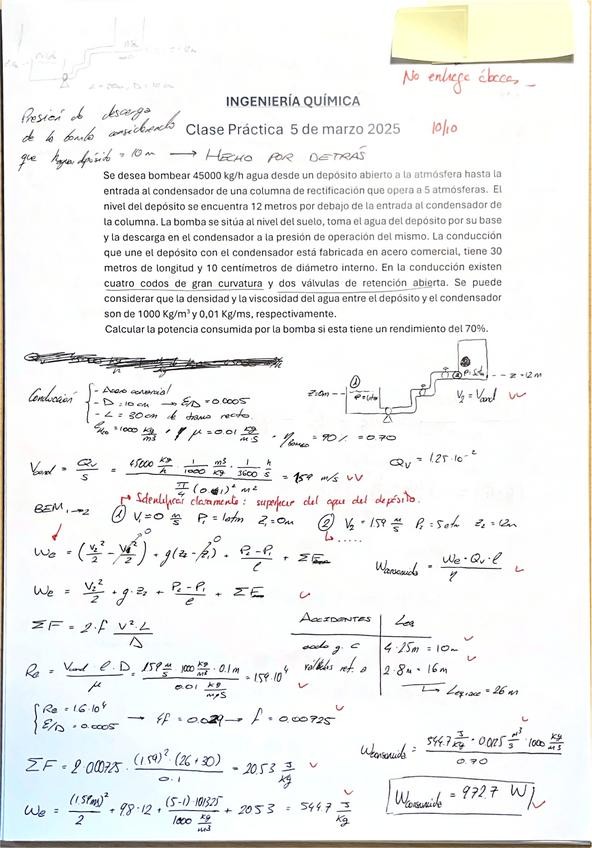 No entrega ábacos
INGENIERÍA QUÍMICA
Presión de descarga
de la bomba considerando
Clase Práctica 5 de marzo 2025
10/10
que depósito = 10 m → HECHO POR DETRÁS
Se desea bombear 45000 kg/h agua desde un depósito abierto a la atmósfera hasta la
entrada al condensador de una columna de rectificación que opera a 5 atmósferas. El
nivel del depósito se encuentra 12 metros por debajo de la entrada al condensador de
la columna. La bomba se sitúa al nivel del suelo, toma el agua del depósito por su base
y la descarga en el condensador a la presión de operación del mismo. La conducción
que une el depósito con el condensador está fabricada en acero comercial, tiene 30
metros de longitud y 10 centímetros de diámetro interno. En la conducción existen
cuatro codos de gran curvatura y dos válvulas de retención abierta. Se puede
considerar que la densidad y la viscosidad del agua entre el depósito y el condensador
son de 1000 Kg/m³ y 0,01 Kg/ms, respectivamente.
Calcular la potencia consumida por la bomba si esta tiene un rendimiento del 70%.
Conducción
- Acero comercial
- D = 10 cm → E/D = 0.0005
- L = 30 cm de tramo recto
ρ = 1000 Kg/m³, μ = 0.01 Kg/m·s, η = 90% = 0.70
z=0m
① P=1atm
② P=5atm
z = 12m
V₂ = Vcond
Qv = 1.25·10⁻²
Vcond = Qv/S = (45000 Kg/h · 1/1000 m³/Kg · 1/3600 h/s) / (π/4 (0.1)² m²) = 1.59 m/s
Identificar claramente: superficie del agua del depósito.
BEM 1→2
① V₁ = 0 m/s P₁ = 1atm Z₁ = 0m
② V₂ = 1.59 m/s P₂ = 5atm Z₂ = 12m
We = (V₂²/2 - V₁²/2) + g(z₂ - z₁) + (P₂-P₁)/ρ + ΣF
Wconsumida = We·Qv·ρ/η
We = V₂²/2 + g·z₂ + (P₂-P₁)/ρ + ΣF
ΣF = 2·f V²·L/D
ACCIDENTES Leq
codo g. c 4·2.5m = 10m
válvulas ret. a 2·8m = 16m
Leq,acc = 26m
Re = Vcond ρ·D/μ = (1.59 m/s · 1000 Kg/m³ · 0.1m)/(0.01 Kg/m·s) = 1.59·10⁴
Re = 1.6·10⁴
E/D = 0.0005
→ 4f = 0.029 → f = 0.00725
Wconsumida = (544.7 J/Kg · 0.0125 m³/s · 1000 Kg/m³)/0.70
ΣF = 2·0.00725 · (1.59)²·(26+30)/0.1 = 20.53 J/Kg
We = (1.59m)²/2 + 9.8·12 + (5-1)·101325/1000 Kg/m³ + 20.53 = 544.7 J/Kg
Wconsumida = 9727 W